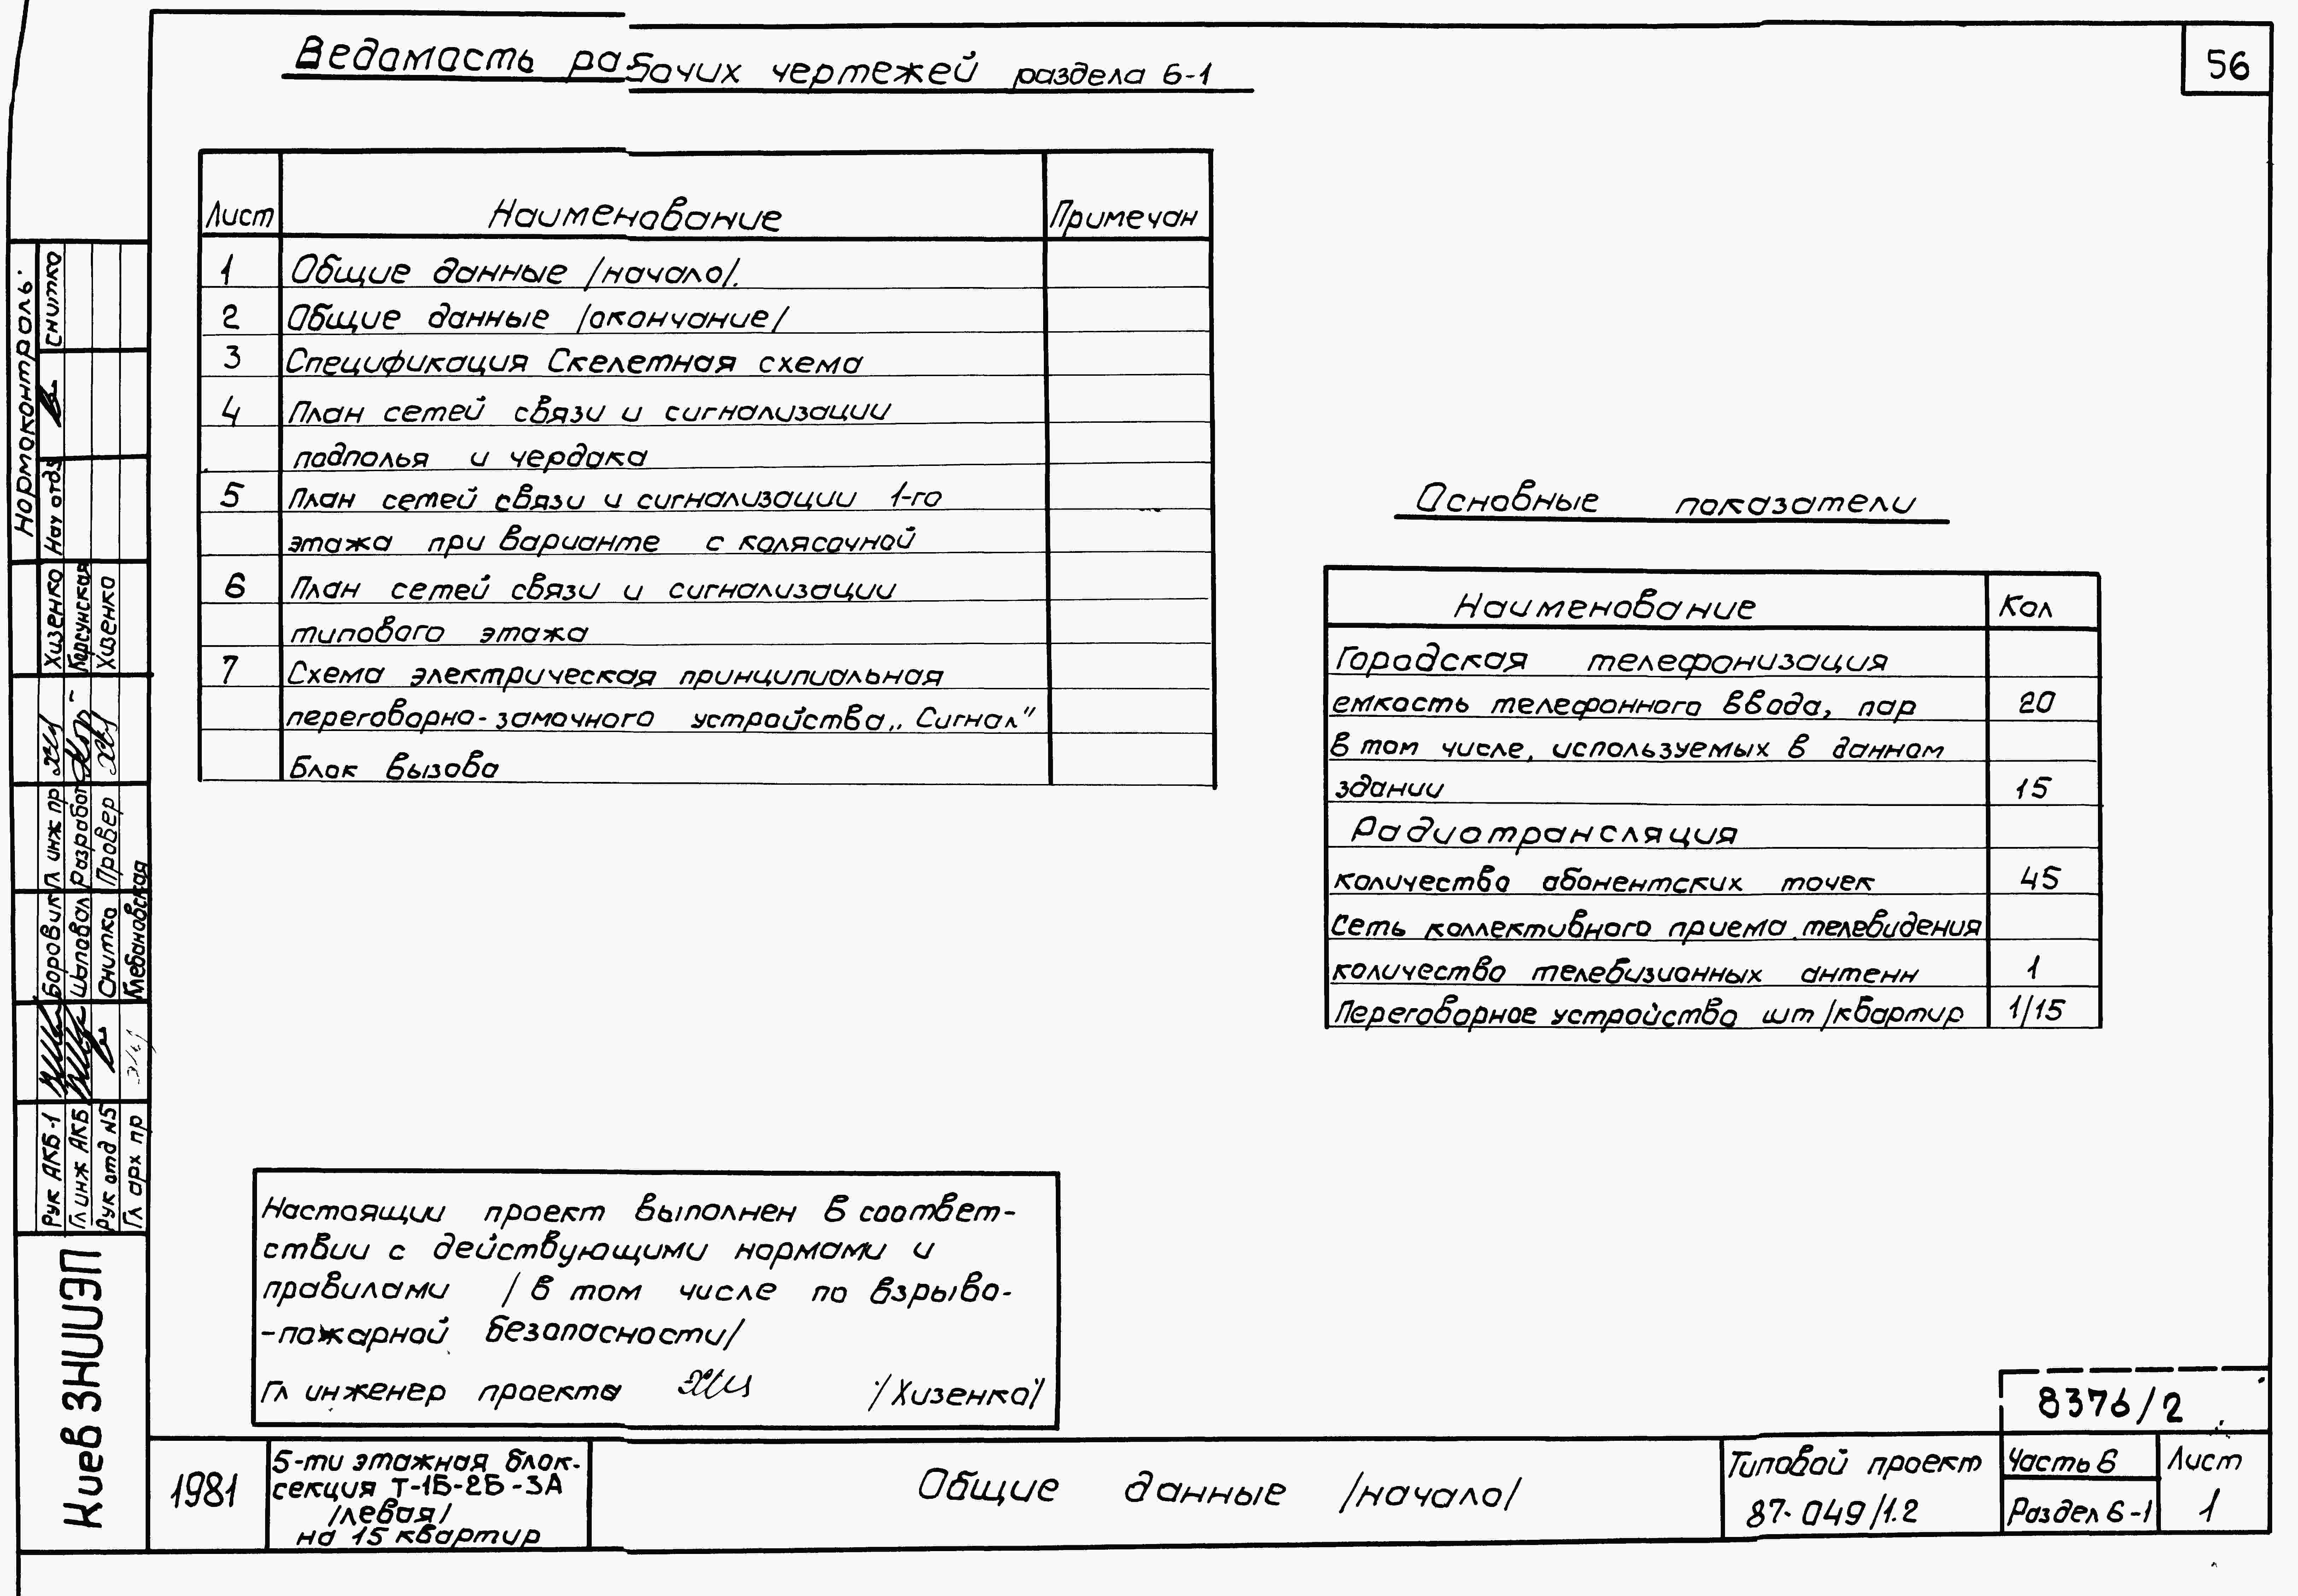 56
Ведомость рабочих чертежей раздела 6-1
Лист Наименование Примечан
1 Общие данные /начало/.
2 Общие данные /окончание/
3 Спецификация Скелетная схема
4 План сетей связи и сигнализации
подполья и чердака
5 План сетей связи и сигнализации 1-го
этажа при варианте с колясочной
6 План сетей связи и сигнализации
типового этажа
7 Схема электрическая принципиальная
переговорно-замочного устройства „Сигнал"
Блок вызова
Основные показатели
Наименование Кол
Городская телефонизация
емкость телефонного ввода, пар 20
в том числе, используемых в данном
здании 15
Радиотрансляция
количество абонентских точек 45
Сеть коллективного приема телевидения
количество телевизионных антенн 1
Переговорное устройство шт/квартир 1/15
Настоящии проект выполнен в соответ-
ствии с действующими нормами и
правилами /в том числе по взрыво-
-пожарной безопасности/
Гл инженер проекта /Хизенко/
8376/2
1981
5-ти этажная блок-
секция Т-1Б-2Б-3А
/левая/
на 15 квартир
Общие данные /начало/
Типовой проект
87-049/1.2
Часть 6
Раздел 6-1
Лист
1
Киев ЗНИИЭП
Рук АКБ-1 Боровик
Гл инж АКБ Шаповал
Рук отд №5 Снитко
Гл арх пр Клебановская
Гл инж пр Хизенко
Разработ Корсунская
Провер Хизенко
Нормоконтроль
Нач отд 5 Снитко